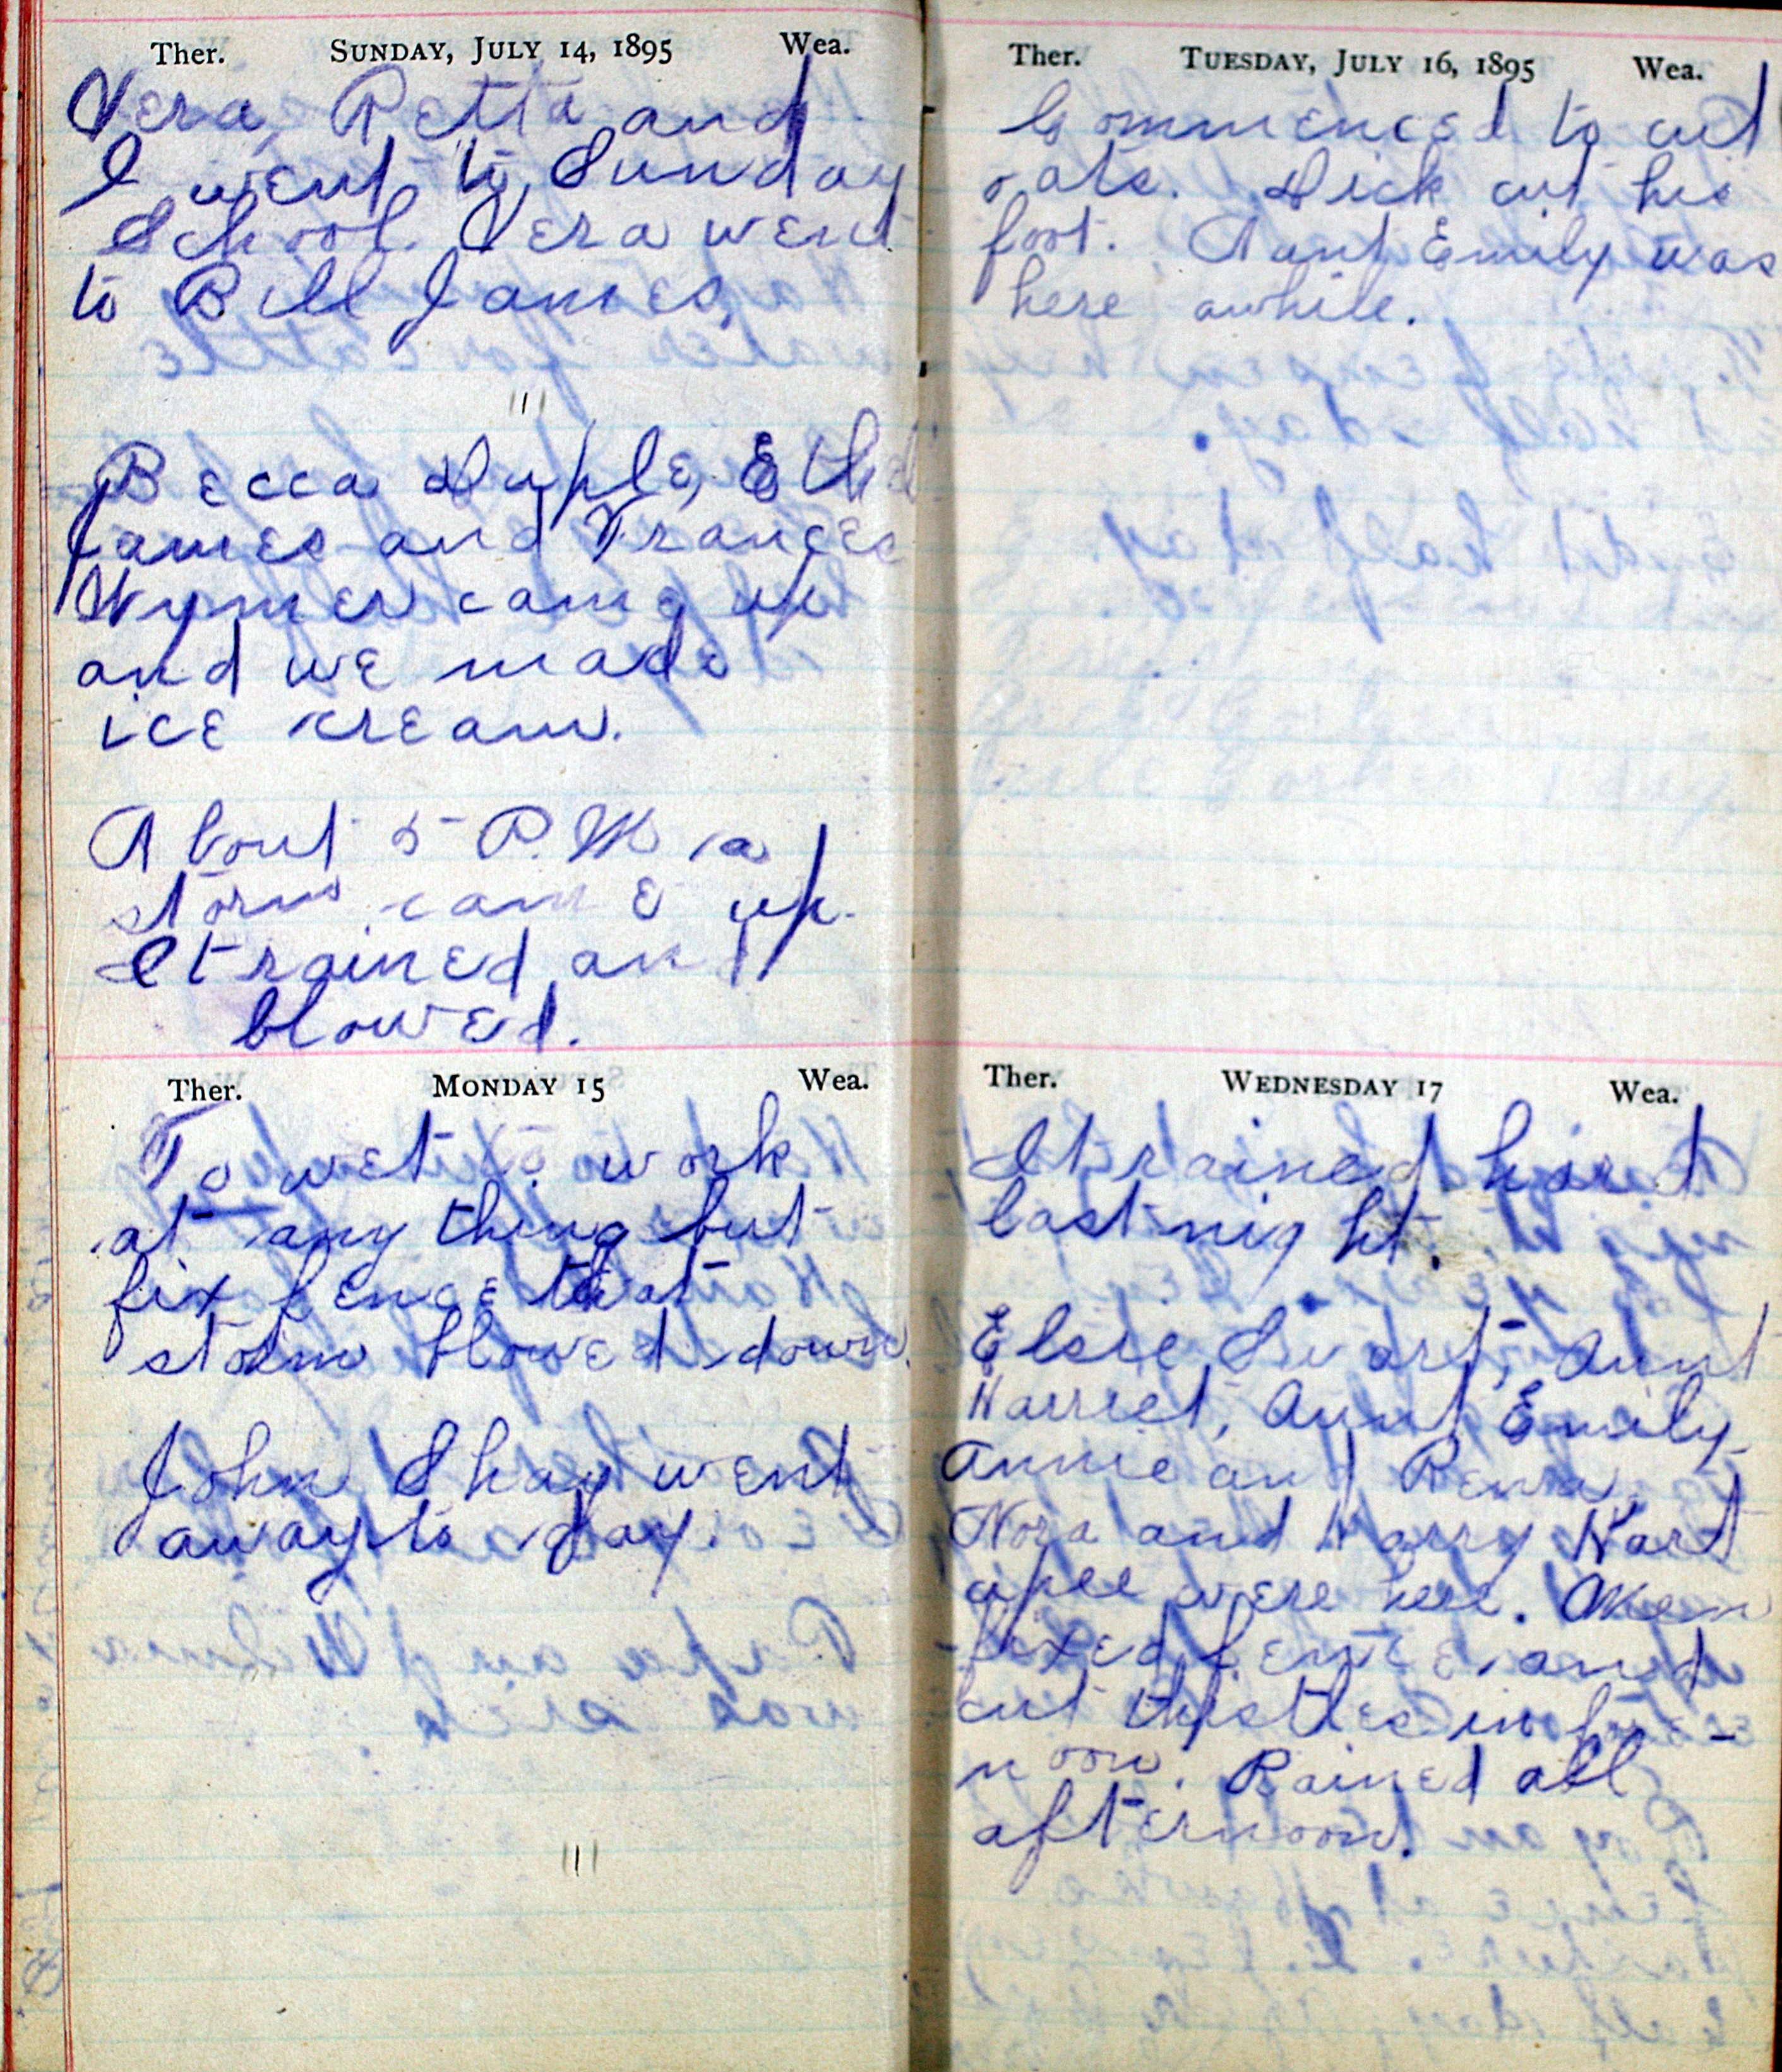 Ther. SUNDAY, JULY 14, 1895 Wea.
Vera, Retta and
I went to Sunday
School. Vera went
to Bill James.
Becca Duple, Ethel
James and Frances
Wymer came up
and we made
ice cream.
About 5 P.M a
storm came up.
It rained and
blowed.
Ther. MONDAY 15 Wea.
To wet to work
at any thing but
fix fence that
storm blowed down.
John Shay went
away to day.
Ther. TUESDAY, JULY 16, 1895 Wea.
Commenced to cut
oats. Dick cut his
foot. Aunt Emily was
here awhile.
Ther. WEDNESDAY 17 Wea.
It rained hard
last night.
Elsie Swart, Aunt
Harriet, Aunt Emily
Annie and Rena,
Nora and Harry Hart
upee were here. Men
fixed fence and
cut thistles in fore-
noon. Rained all
afternoon.